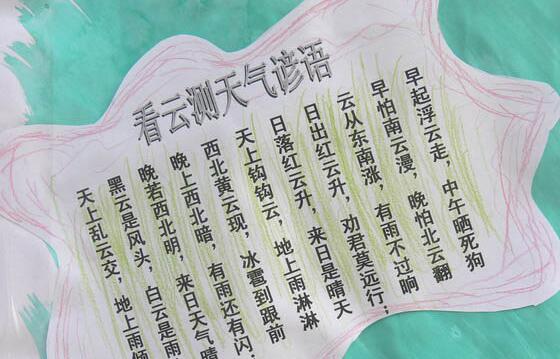 看云测天气谚语
早起浮云走，中午晒死狗
早怕南云漫，晚怕北云翻
云从东南涨，有雨不过晌
日出红云升，劝君莫远行；
日落红云升，来日是晴天
天上钩钩云，地上雨淋淋
西北黄云现，冰雹到跟前
晚上西北暗，有雨还有闪；
晚若西北明，来日天气晴
黑云是风头，白云是雨
天上乱云交，地上雨倾